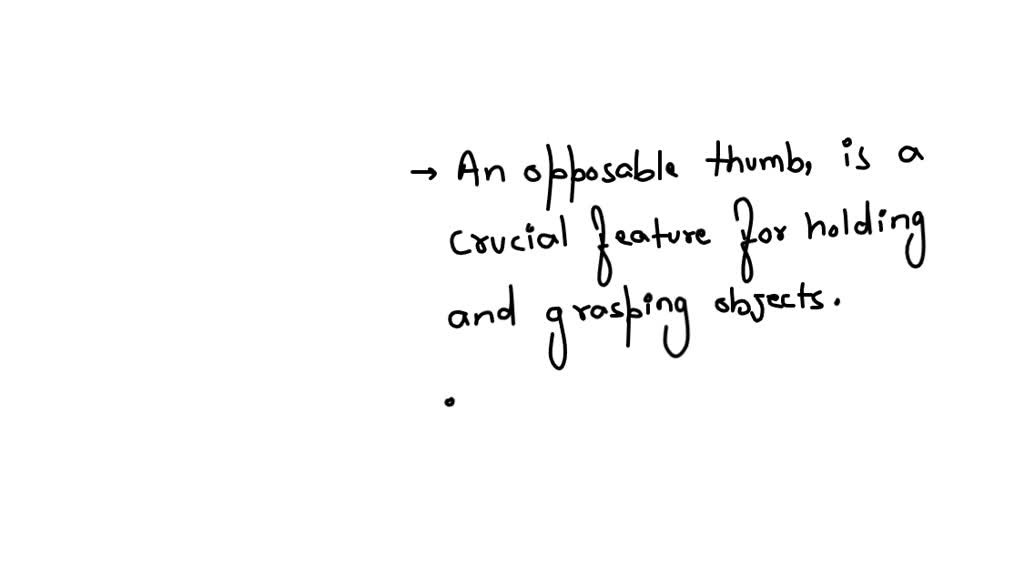 → An opposable thumb, is a
crucial feature for holding
and grasping objects.